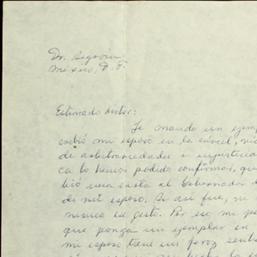 Dr. Segovia
México, D. F.
Estimado doctor:
Te mando un ejemp
mi esposo en la cárcel, víc
de arbitrariedades e injusticia
lo hemos podido confirmar, que
tió una carta al Gobernador d
de mi esposo. Si así fue, su
nunca la gesto. Por eso mi pe
que ponga un ejemplar en
mi esposo tiene un feroz senti